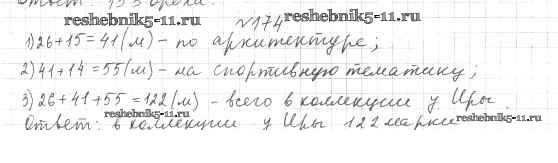 Ответ: 153 ореха.
reshebnik5-11.ru
№174
reshebnik5-11.ru
1) 26+15=41(м) - по архитектуре;
2) 41+14=55(м) - на спортивную тематику;
3) 26+41+55=122(м) - всего в коллекции у Иры.
reshebnik5-11.ru
Ответ: в коллекции у Иры 122 марки
reshebnik5-11.ru